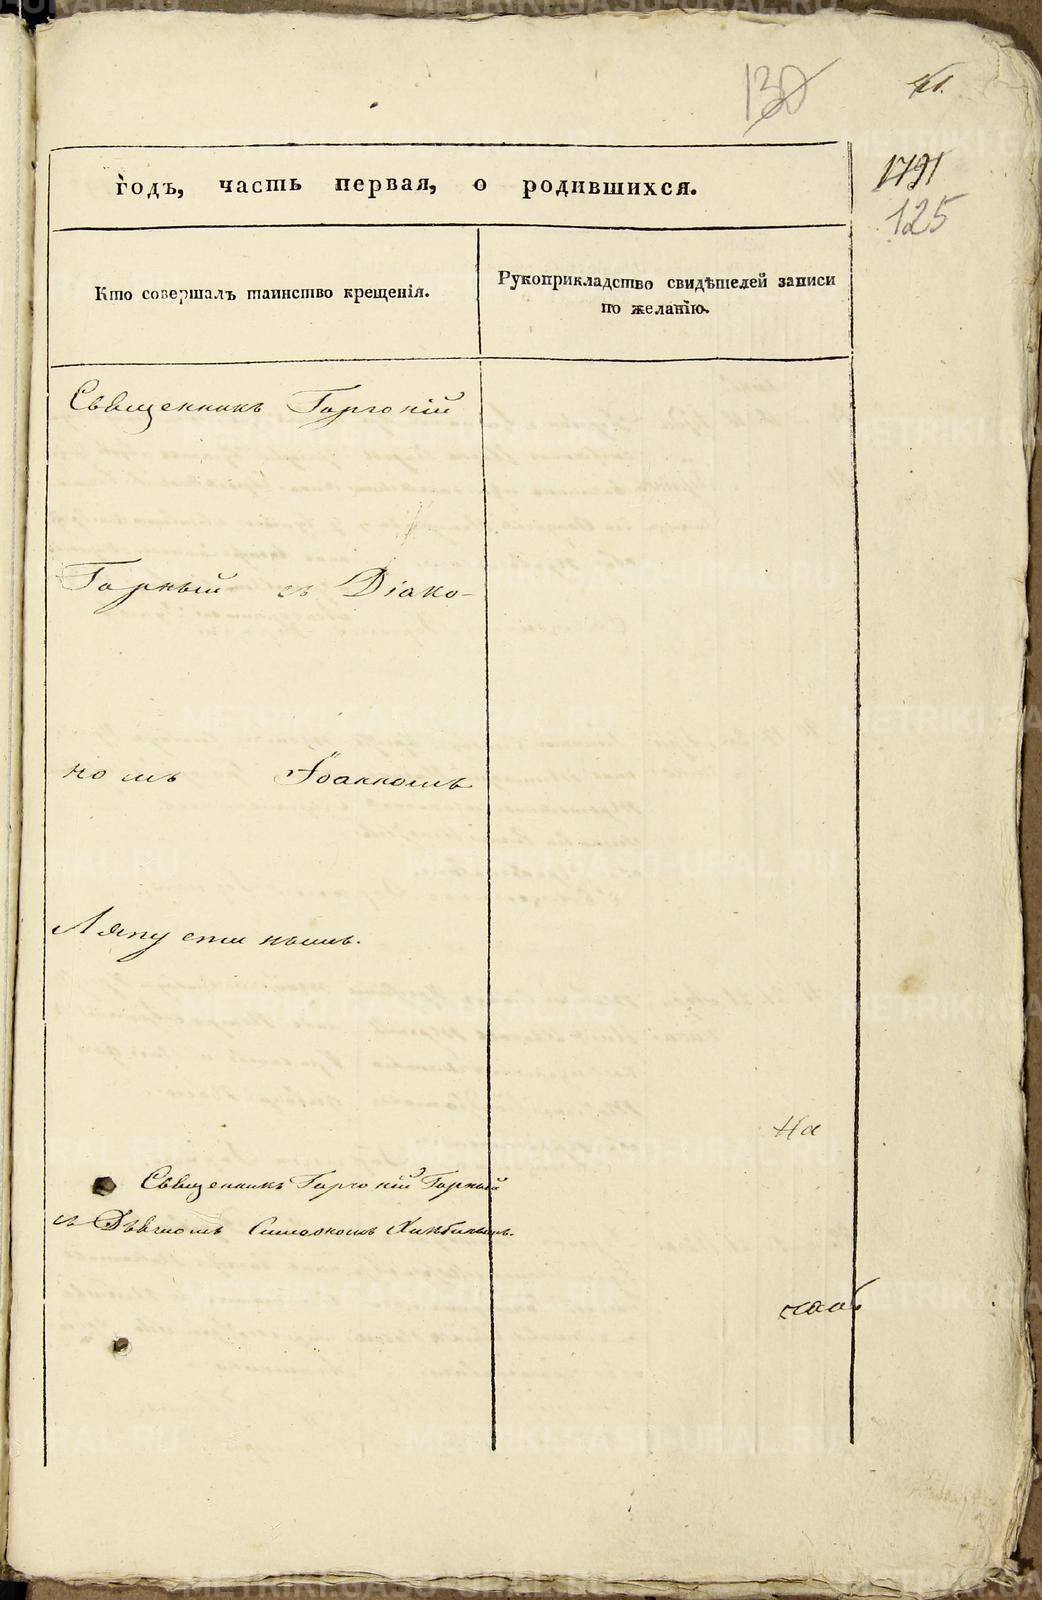 130
1791
годъ, часть первая, о родившихся.
125
Кто совершалъ таинство крещенія.
Рукоприкладство свидѣтелей записи
по желанію.
Священникъ Горгоній
Горный съ Діако-
номъ Іоанномъ
Ляпустинымъ.
На
Священникъ Горгоній Горный
съ Дьячкомъ Симеономъ
METRIKI.GASO-URAL.RU